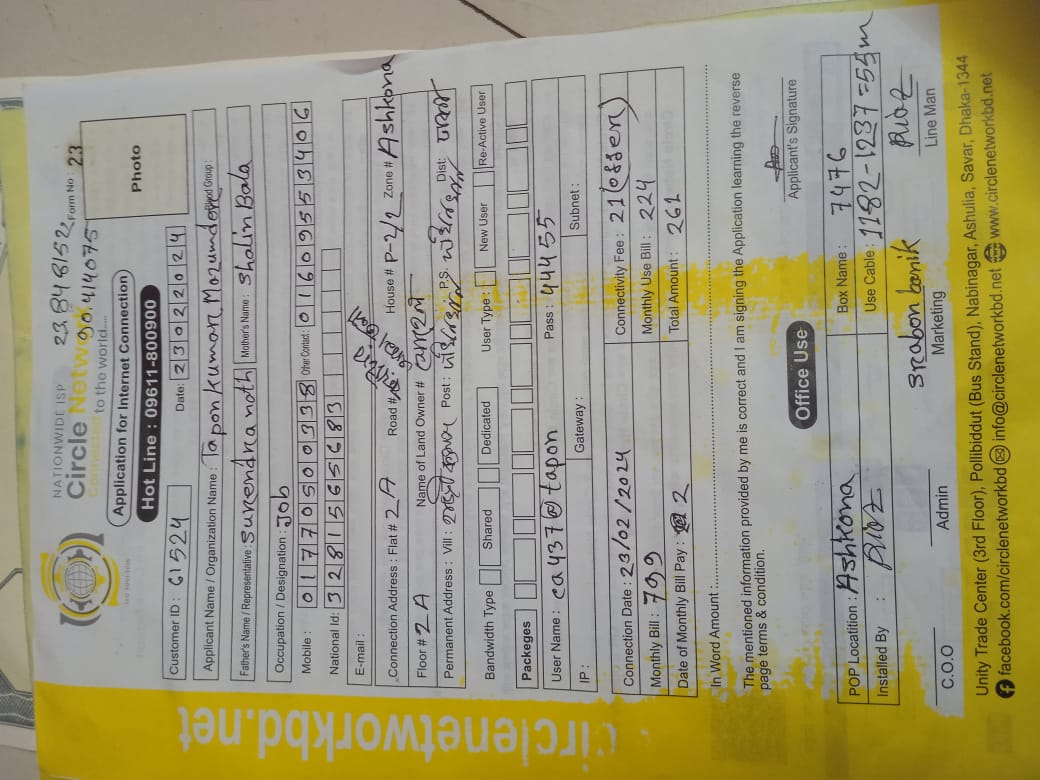 NATIONWIDE ISP
Circle Network
Connects to the world....
Form No : 23
Application for Internet Connection
Hot Line : 09611-800900
Photo
Customer ID : 61524
Date: 23022024
Applicant Name / Organization Name : Tapon Kumar Mozumder
Blood Group :
Father's Name / Representative : Surendra noth
Mother's Name : Shalin Bala
Occupation / Designation : Job
Mobile : 01770500338
Other Contact : 01609553406
National Id: 3281565683
E-mail :
Connection Address : Flat # 2A
Road #
House # P-2/2
Zone # Ashkona
Floor # 2A
Name of Land Owner #
Permanent Address : Vill :
Post :
P.S.
Dist:
Bandwidth Type
Shared
Dedicated
User Type :
New User
Re-Active User
Packeges
User Name : ca437@tapon
Pass : 44455
IP :
Gateway :
Subnet :
Connection Date : 23/02/2024
Connectivity Fee : 21 (offer)
Monthly Bill : 799
Monthly Use Bill : 224
Date of Monthly Bill Pay : 2
Total Amount : 261
In Word Amount :
The mentioned information provided by me is correct and I am signing the Application learning the reverse
page terms & condition.
Applicant's Signature
Office Use
POP Locatition : Ashkona
Box Name : 7476
Installed By :
Use Cable : 1182-1237=55m
srabon banik
C.O.O
Admin
Marketing
Line Man
Unity Trade Center (3rd Floor), Pollibiddut (Bus Stand), Nabinagar, Ashulia, Savar, Dhaka-1344
facebook.com/circlenetworkbd info@circlenetworkbd.net www.circlenetworkbd.net
circlenetworkbd.net